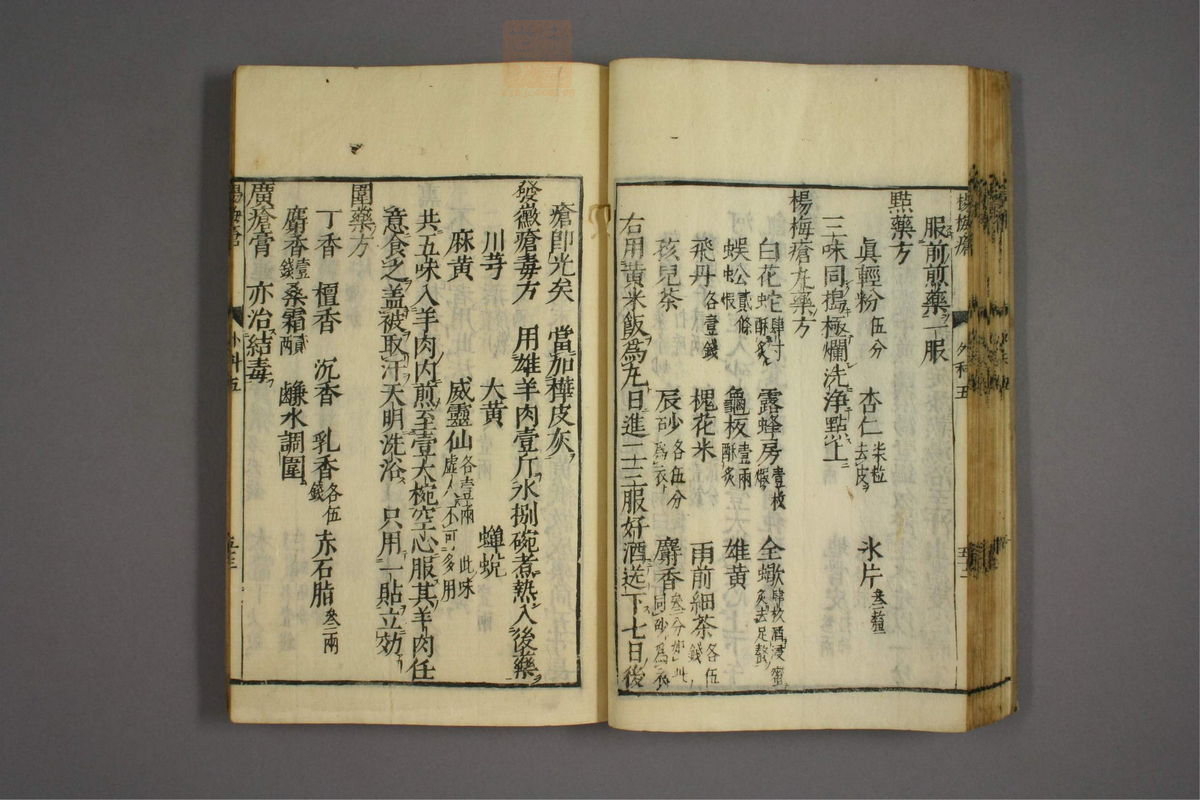 楊梅瘡 外科五 五十二
服前煎藥一服
點藥方
眞輕粉伍分 杏仁柒粒去皮 氷片叁釐
三味同搗極爛洗浄點上
楊梅瘡丸藥方
白花蛇肆寸酥炙 露蜂房壹枚煆 全蠍肆枚酒浸蜜炙去足螫
蜈公貳條煆 龜板壹兩酥炙 雄黄
飛丹各壹錢 槐花米 雨前細茶各伍錢
孩兒茶 辰砂各伍分石為衣 麝香叁分如此同砂為衣
右用黄米飯為丸日進二十三服好酒送下七日後
瘡即光矣 當加樺皮灰
發黴瘡毒方 用雄羊肉壹斤水捌碗煮熟入後藥
川芎 大黄 蟬蛻
麻黄 威靈仙各壹兩此味虚人不可多用
共五味入羊肉肉煎至壹大椀空心服其羊肉任
意食之盖被取汗天明洗浴 只用一貼立効
圍藥方
丁香 檀香 沉香 乳香各伍錢 赤石脂叁兩
麝香壹錢 桑霜貳兩 鹻水調圍
廣瘡膏 亦治結毒
楊梅瘡 外科五 五十三